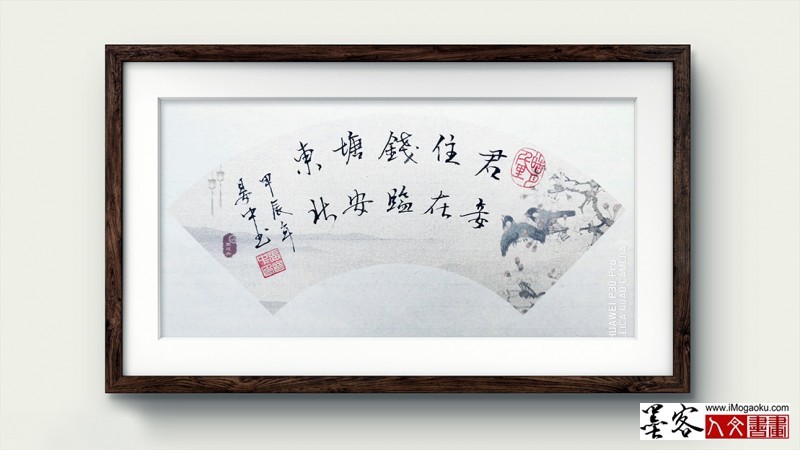 君住錢塘東
妾在臨安北
甲辰年
中书
HUAWEI P30 Pro
LEICA QUAD CAMERA
墨客
www.iMogaoku.com
人文書畫